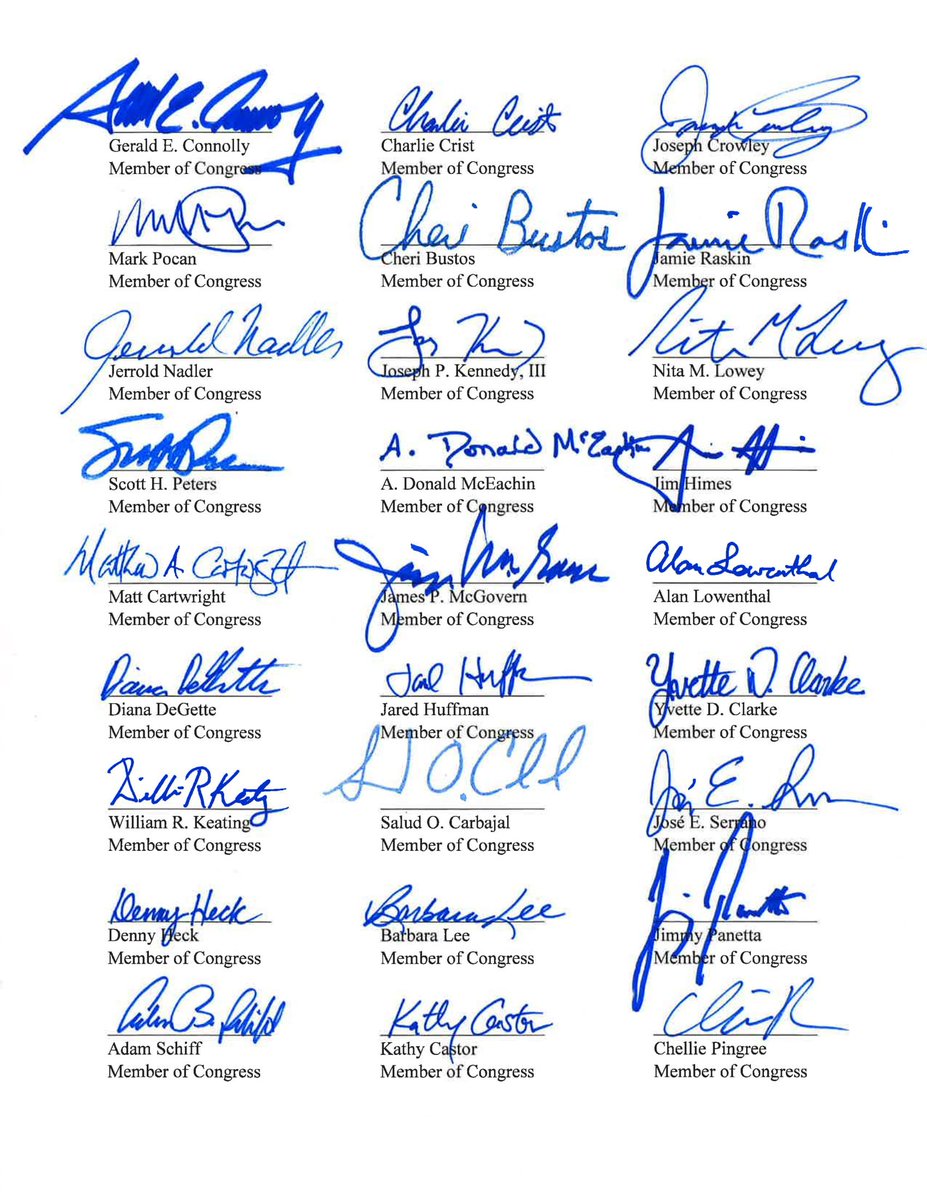 Gerald E. Connolly
Member of Congress
Charlie Crist
Charlie Crist
Member of Congress
Joseph Crowley
Member of Congress
Mark Pocan
Member of Congress
Cheri Bustos
Cheri Bustos
Member of Congress
Jamie Raskin
Jamie Raskin
Member of Congress
Jerrold Nadler
Jerrold Nadler
Member of Congress
Joseph P. Kennedy, III
Member of Congress
Nita M. Lowey
Member of Congress
Scott H. Peters
Member of Congress
A. Donald McEachin
A. Donald McEachin
Member of Congress
Jim Himes
Member of Congress
Matthew A. Cartwright
Matt Cartwright
Member of Congress
James P. McGovern
Member of Congress
Alan Lowenthal
Alan Lowenthal
Member of Congress
Diana DeGette
Member of Congress
Jared Huffman
Member of Congress
Yvette D. Clarke
Yvette D. Clarke
Member of Congress
William R. Keating
Member of Congress
Salud O. Carbajal
Member of Congress
José E. Serrano
Member of Congress
Denny Heck
Denny Heck
Member of Congress
Barbara Lee
Barbara Lee
Member of Congress
Jimmy Panetta
Member of Congress
Adam Schiff
Member of Congress
Kathy Castor
Kathy Castor
Member of Congress
Chellie Pingree
Member of Congress